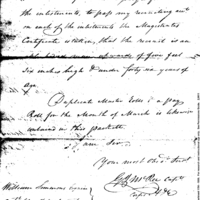 the enlistments, to pass any
on each of the enlistments the Magistrates
Certificate of Oath, that the recruit is an
upwards of five feet
Six inches high & under forty six years of
Age.
Duplicate Muster Rolls & a pay
Roll for the Month of March is likewise
enclosed in this packet
I am Sir
Your most Obedt Servt
Capt
William Simmons Esquire